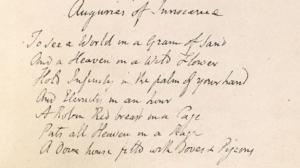 Auguries of Innocence
To see a World in a Grain of Sand
And a Heaven in a Wild Flower
Hold Infinity in the palm of your hand
And Eternity in an hour
A Robin Red breast in a Cage
Puts all Heaven in a Rage
A dove house filld with Doves & Pigeons